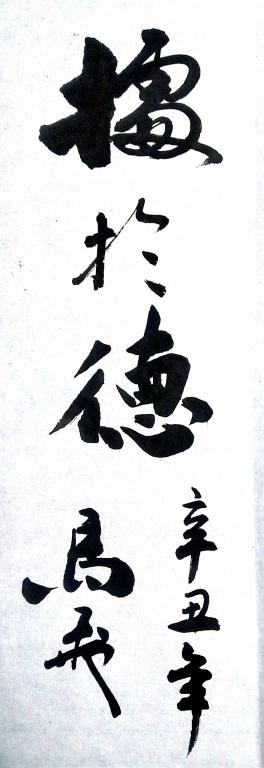 據於德
辛丑年
馬